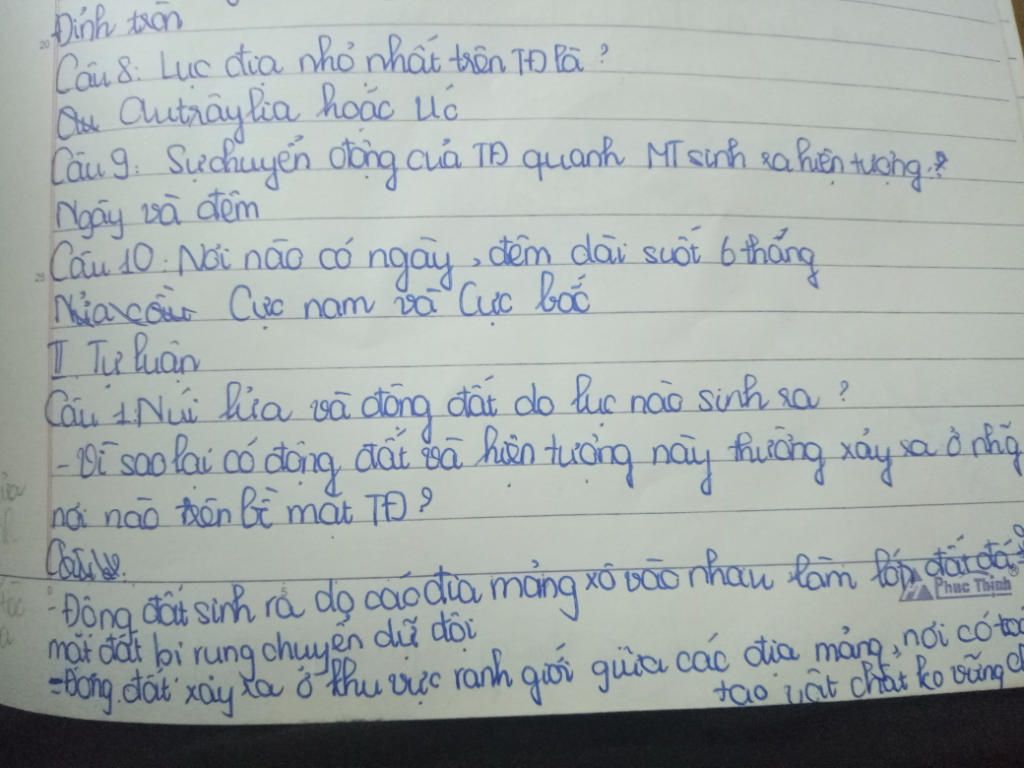 Đỉnh tròn
Câu 8: Lục địa nhỏ nhất trên TĐ là ?
Autrâylia hoặc Úc
Câu 9: Sự chuyển động của TĐ quanh MT sinh ra hiện tượng ?
Ngày và đêm
Câu 10: Nơi nào có ngày, đêm dài suốt 6 tháng
Cực nam và Cực bắc
II Tự luận
Câu 1. Núi lửa và động đất do lực nào sinh ra ?
- Vì sao lại có động đất và hiện tượng này thường xảy ra ở nhg
nơi nào trên bề mặt TĐ ?
- Động đất sinh ra do các địa mảng xô vào nhau làm lớp đất đá
Phúc Thịnh
mặt đất bị rung chuyển dữ dội
- Động đất xảy ra ở khu vực ranh giới giữa các địa mảng, nơi có
tạo vật chất ko vững